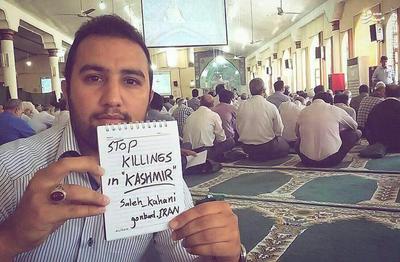 STOP
KILLINGS
in "KASHMIR"
Saleh_Kahani
gonbad.IRAN